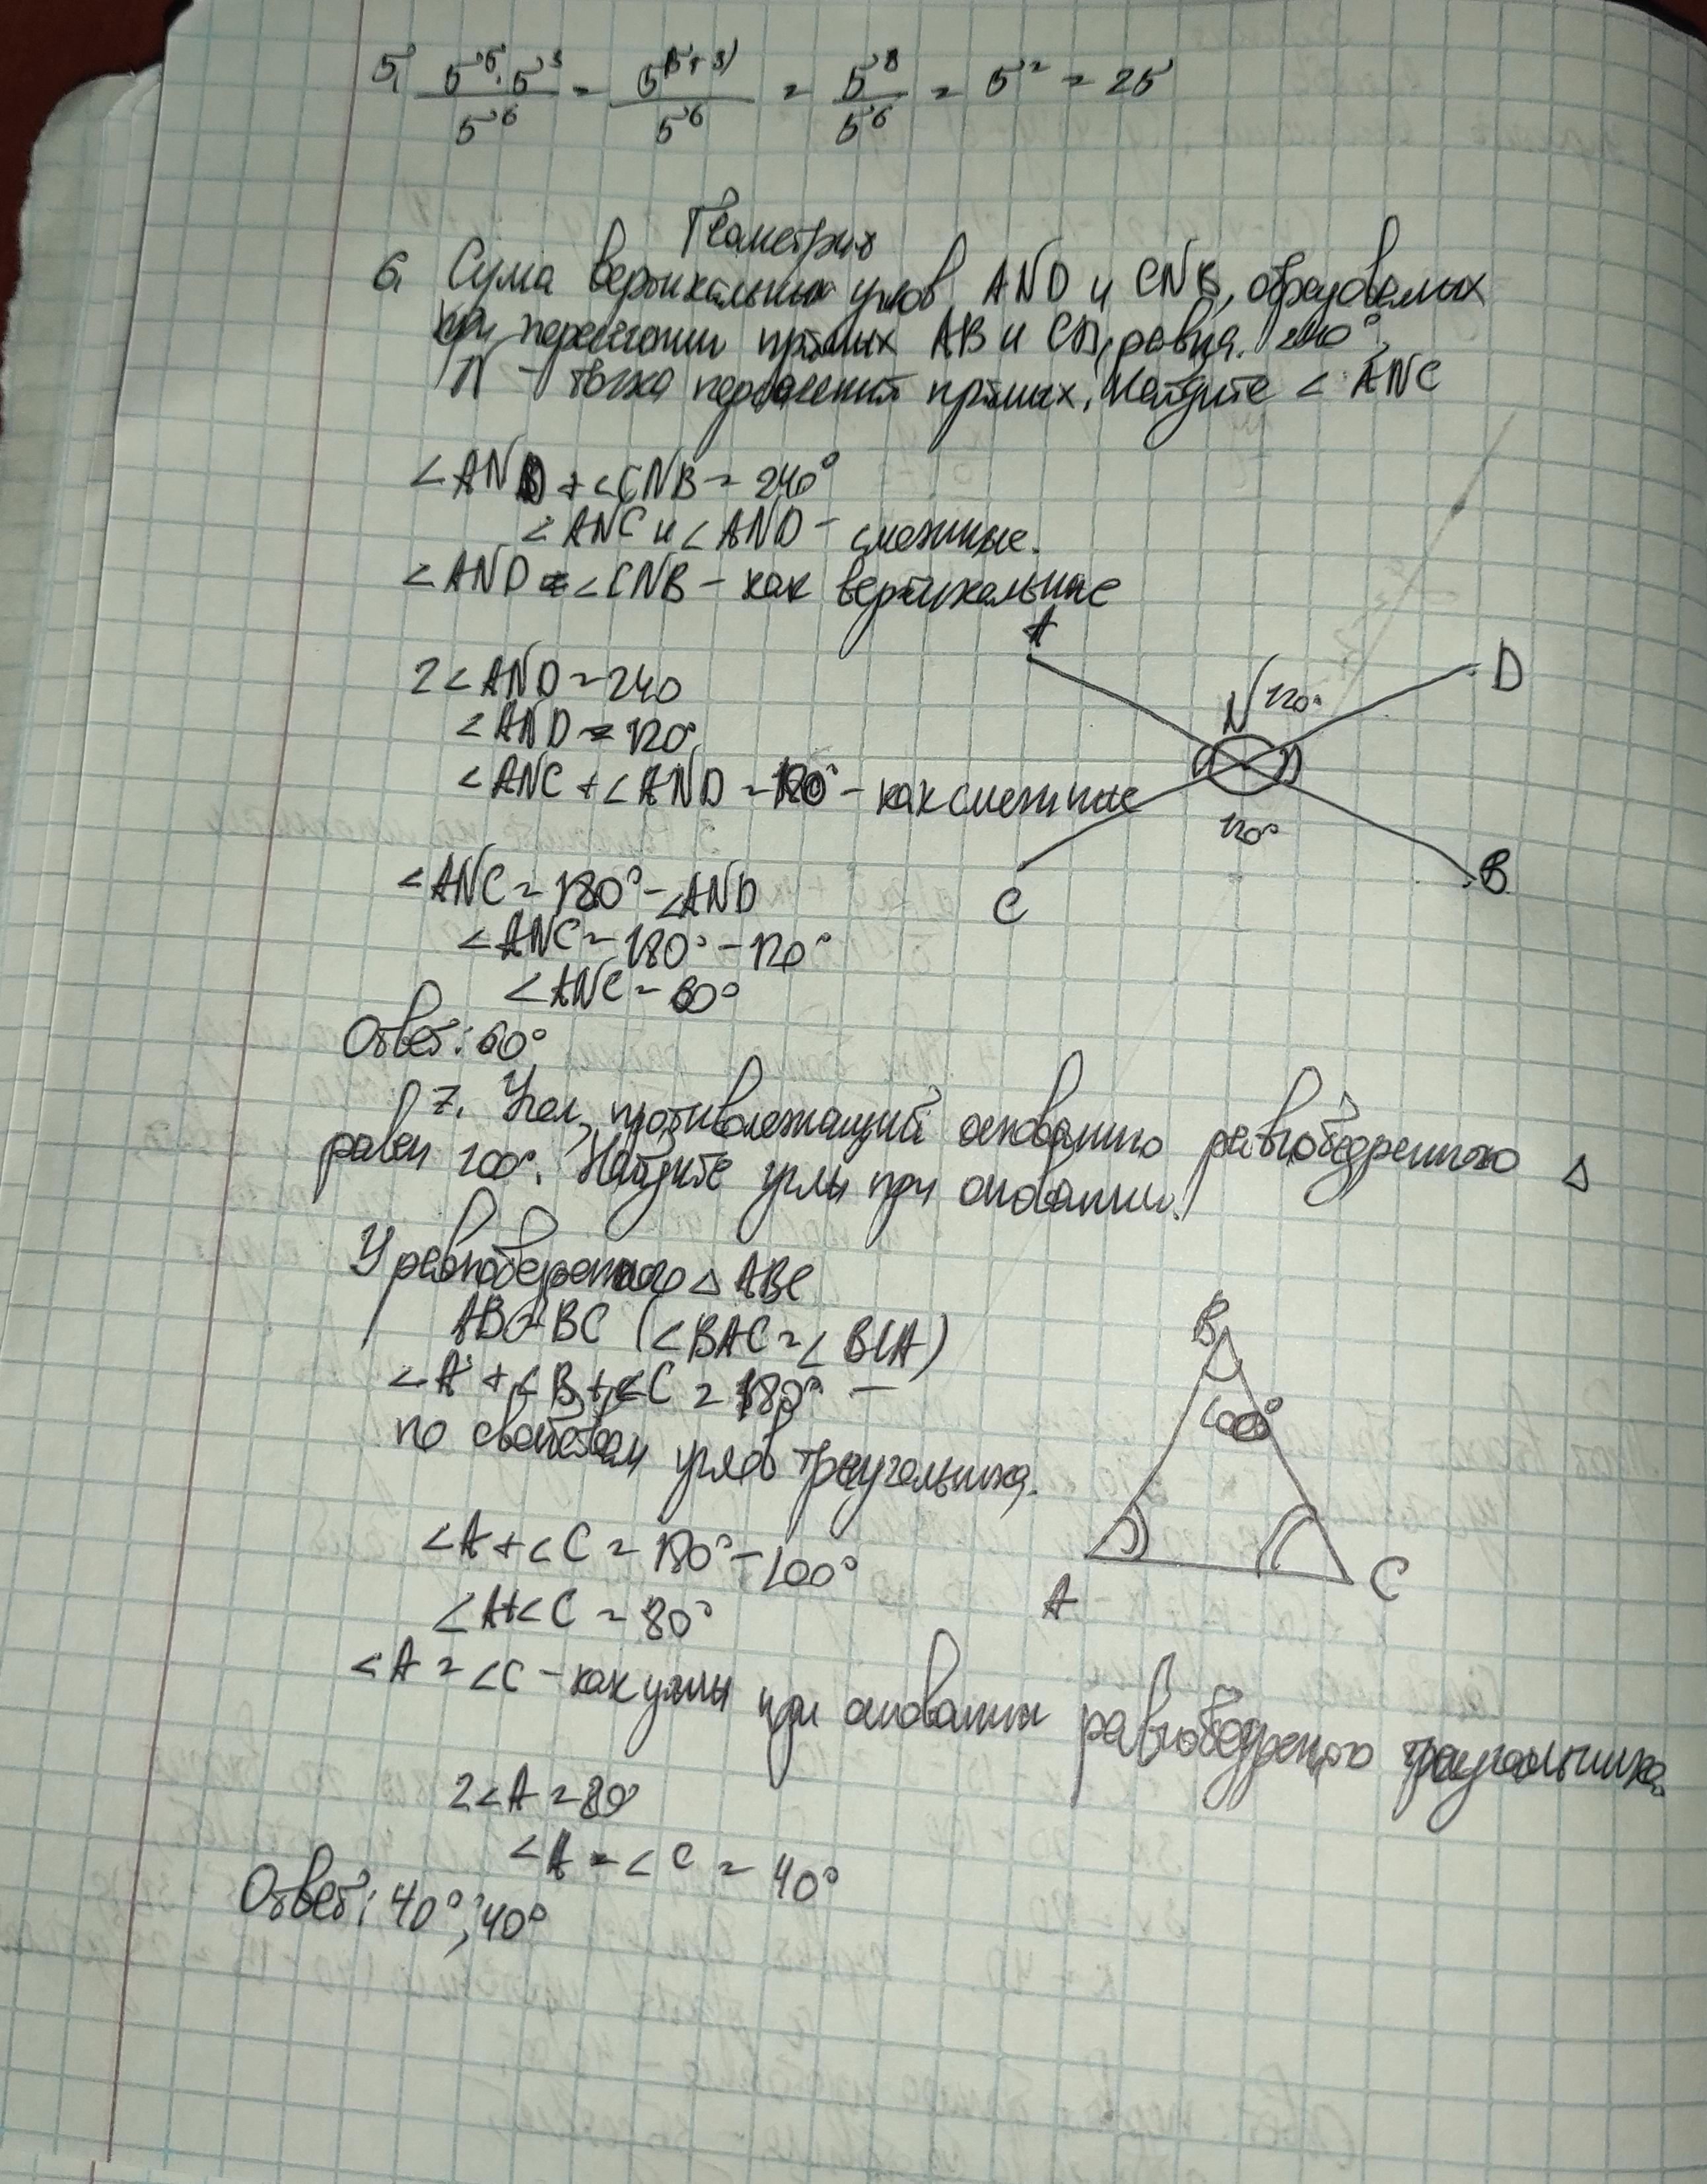 5. 5⁵·5³/5⁶ = 5⁽⁵⁺³⁾/5⁶ = 5⁸/5⁶ = 5² = 25
Геометрия
6. Сума вертикальных углов AND и CNB, образованых
при пересечении прямых AB и CD, равна 240°,
N – точка пересечения прямых. Найдите ∠ANC
∠AND + ∠CNB = 240°
∠ANC и ∠AND – смежные.
∠AND = ∠CNB – как вертикальные
2∠AND = 240
∠AND = 120°
∠ANC + ∠AND = 180° – как смежные
A
D
N 120°
120°
C
B
∠ANC = 180° – ∠AND
∠ANC = 180° – 120°
∠ANC = 60°
Ответ: 60°
7. Угол, противолежащий основанию равнобедренного △
равен 100°. Найдите углы при основании.
У равнобедренного △ABC
AB = BC (∠BAC = ∠BCA)
∠A + ∠B + ∠C = 180° –
по свойствам углов треугольника.
B
100°
A
C
∠A + ∠C = 180° – 100°
∠A + ∠C = 80°
∠A = ∠C – как углы при основании равнобедреного треугольника
2∠A = 80°
∠A = ∠C = 40°
Ответ: 40°; 40°